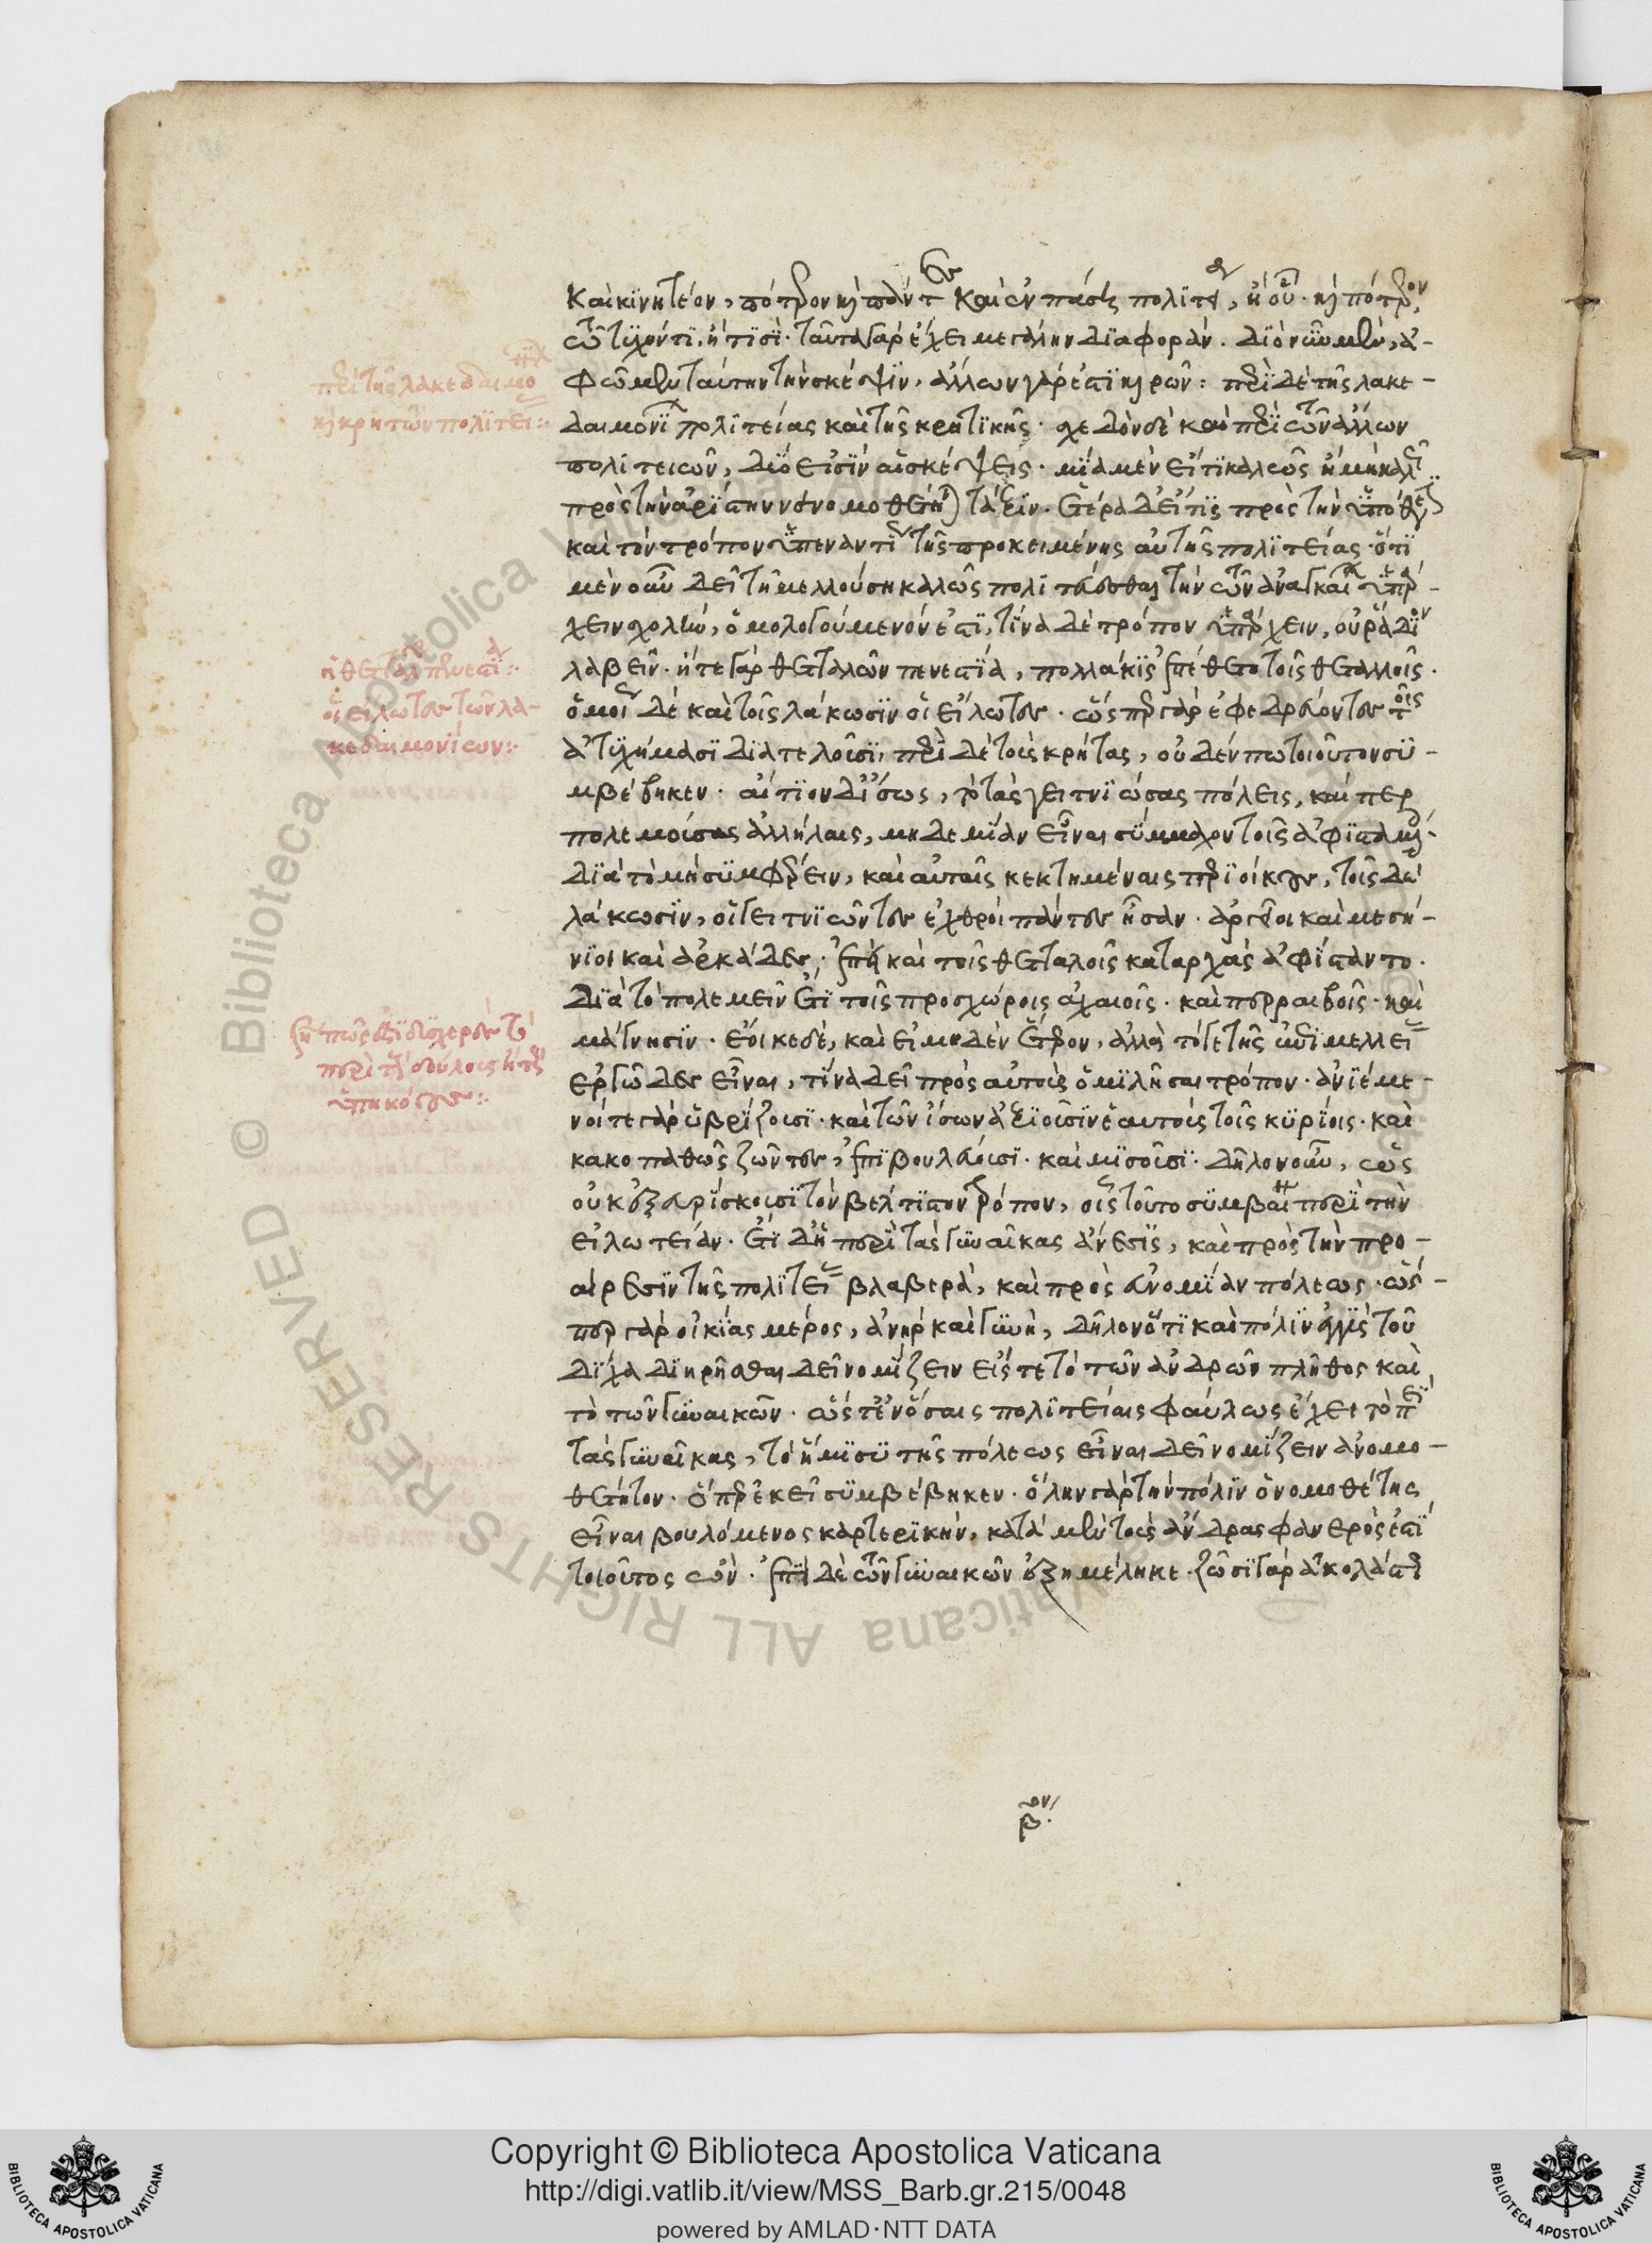 καὶ κινητέον, πότερον καὶ πάντες καὶ ἐν πάσης πολιτεία, ἢ οὔ· καὶ πότερον
τῶ τυχόντι, ἤ τισί· ταῦτα γὰρ ἔχει μεγάλην διαφοράν. διὸ νῦν μὲν, ἀ-
φῶμεν ταύτην τὴν σκέψιν, ἄλλων γάρ ἐστι καιρῶν: περὶ δὲ τῆς λακε-
δαιμονίων πολιτείας καὶ τῆς κρητικῆς· σχεδὸν δὲ καὶ περὶ τῶν ἄλλων
πολιτειῶν, δύο εἰσὶν αἱ σκέψεις· μία μὲν εἴ τι καλῶς ἢ μὴ καλῶς
πρὸς τὴν ἀρίστην νενομοθέτηται τάξιν. ἑτέρα δ' εἴ τις πρὸς τὴν ὑπόθεσιν
καὶ τὸν τρόπον ὑπεναντίως τῆς προκειμένης αὐτῆς πολιτείας· ὅτι
μὲν οὖν δεῖ τῆ μελλούση καλῶς πολιτεύσθαι τὴν τῶν ἀναγκαίων ὑπάρ-
χειν σχολὴν, ὁμολογούμενόν ἐστι, τίνα δὲ τρόπον ὑπάρχειν, οὐ ῥάδιον
λαβεῖν· ἥ τε γὰρ θεταλῶν πενεστία, πολλάκις ἐπέθετο τοῖς θεταλοῖς·
ὁμοίως δὲ καὶ τοῖς λάκωσιν οἱ εἵλωτες· ὥσπερ γὰρ ἐφεδρεύοντες τοῖς
ἀτυχήμασι διατελοῦσι, περὶ δὲ τοὺς κρῆτας, οὐδέν πω τοιοῦτον συ-
μβέβηκεν· αἴτιον δ' ἴσως, τὸ τὰς γειτνιώσας πόλεις, καίπερ
πολεμούσας ἀλλήλαις, μηδεμίαν εἶναι σύμμαχον τοῖς ἀφισταμένοις·
διὰ τὸ μὴ συμφέρειν, καὶ αὐταῖς κεκτημέναις περιοίκους, τοῖς δὲ
λάκωσιν, οἱ γειτνιῶντες ἐχθροὶ πάντες ἦσαν· ἀργεῖοι καὶ μεσή-
νιοι καὶ ἀρκάδες, ἐπεὶ καὶ τοῖς θεταλοῖς καταρχὰς ἀφίσταντο·
διὰ τὸ πολεμεῖν ἔτι τοῖς προσχώροις ἀχαιοῖς· καὶ περραιβοῖς· καὶ
μάγνησιν· ἔοικε δὲ, καὶ εἰ μηδὲν ἕτερον, ἀλλὰ τό γε τῆς ἐπιμελείας
ἐργῶδες εἶναι, τίνα δεῖ πρὸς αὐτοὺς ὁμιλῆσαι τρόπον· ἀνιέμε-
νοί τε γὰρ ὑβρίζουσι· καὶ τῶν ἴσων ἀξιοῦσιν ἑαυτοὺς τοῖς κυρίοις· καὶ
κακοπαθῶς ζῶντες, ἐπιβουλεύουσι· καὶ μισοῦσι· δῆλον οὖν, ὡς
οὐκ ἐξευρίσκουσι τὸν βέλτιστον τρόπον, οἷς τοῦτο συμβαίνει περὶ τὴν
εἱλωτείαν· ἔτι δ' ἡ περὶ τὰς γυναῖκας ἄνεσις, καὶ πρὸς τὴν προ-
αίρεσιν τῆς πολιτείας βλαβερὰ, καὶ πρὸς εὐνομίαν πόλεως· ὥσ-
περ γὰρ οἰκίας μέρος, ἀνὴρ καὶ γυνὴ, δῆλον ὅτι καὶ πόλιν ἐγγὺς τοῦ
δίχα διηρῆσθαι δεῖ νομίζειν εἴς τε τὸ τῶν ἀνδρῶν πλῆθος καὶ
τὸ τῶν γυναικῶν· ὥστ' ἐν ὅσαις πολιτείαις φαύλως ἔχει τὸ περὶ
τὰς γυναῖκας, τὸ ἥμισυ τῆς πόλεως εἶναι δεῖ νομίζειν ἀνομο-
θέτητον· ὅπερ ἐκεῖ συμβέβηκεν· ὅλην γὰρ τὴν πόλιν ὁ νομοθέτης
εἶναι βουλόμενος καρτερικὴν, κατὰ μὲν τοὺς ἄνδρας φανερός ἐστι
τοιοῦτος ὤν· ἐπὶ δὲ τῶν γυναικῶν ἐξημέληκε· ζῶσι γὰρ ἀκολάστως
περὶ τῆς λακεδαιμονίων
καὶ κρητῶν πολιτείας:
ἡ θεταλῶν πενεστία:
οἱ εἵλωτες τῶν λα-
κεδαιμονίων:
περὶ τοὺς δούλους καὶ τοὺς
ὑπηκόους:
β΄ον
Copyright © Biblioteca Apostolica Vaticana
http://digi.vatlib.it/view/MSS_Barb.gr.215/0048
powered by AMLAD·NTT DATA
Biblioteca Apostolica Vaticana ALL RIGHTS RESERVED ©
BIBLIOTECA APOSTOLICA VATICANA
BIBLIOTECA APOSTOLICA VATICANA